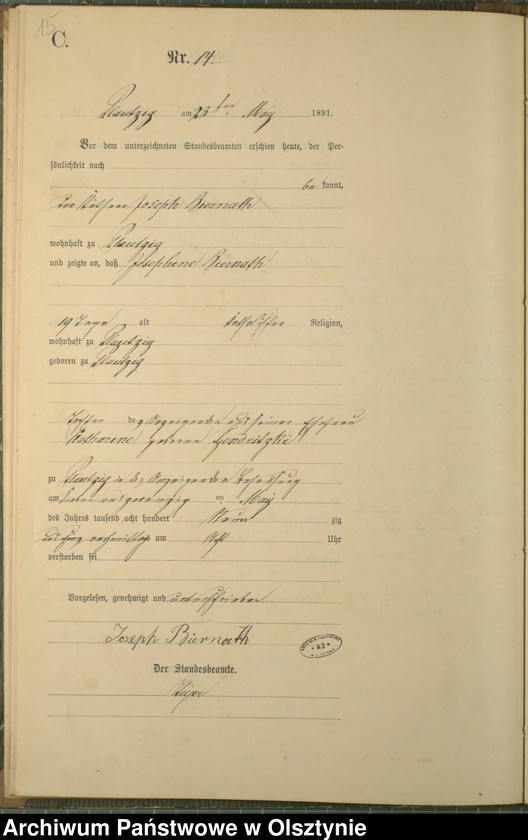 15
C.
Nr. 14.
Plautzig am 25ten May 1891.
Vor dem unterzeichneten Standesbeamten erschien heute, der Per-
sönlichkeit nach
be kannt,
Joseph Biernath
wohnhaft zu Plautzig
und zeigte an, daß Josephine Biernath
19 Tage alt katholischer Religion,
wohnhaft zu Plautzig
geboren zu Plautzig
Tochter des Anzeigenden und seiner Ehefrau
Katharine geborne
zu Plautzig in des Anzeigenden Behausung
am ten May
des Jahres tausend acht hundert Neun zig
und vormittags um Uhr
verstorben sei
Vorgelesen, genehmigt und unterschrieben
Jozeph Biernath
42
Der Standesbeamte.
Archiwum Państwowe w Olsztynie